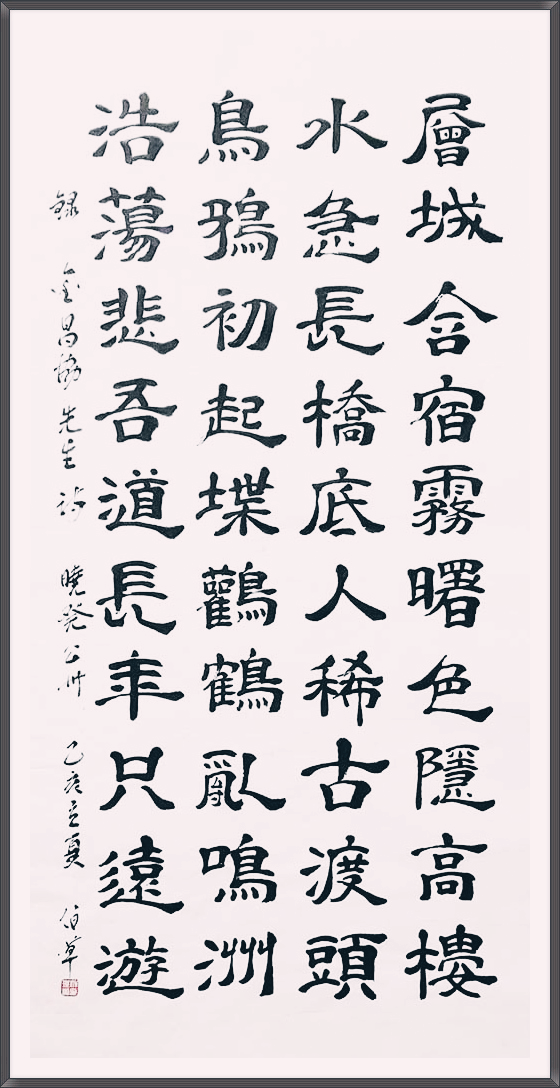 層城含宿霧曙色隱高樓
水急長橋底人稀古渡頭
鳥鴉初起堞鸛鶴亂鳴洲
浩蕩悲吾道長年只遠遊
錄 金昌協先生詩 曉發公州 乙亥立夏 伯草